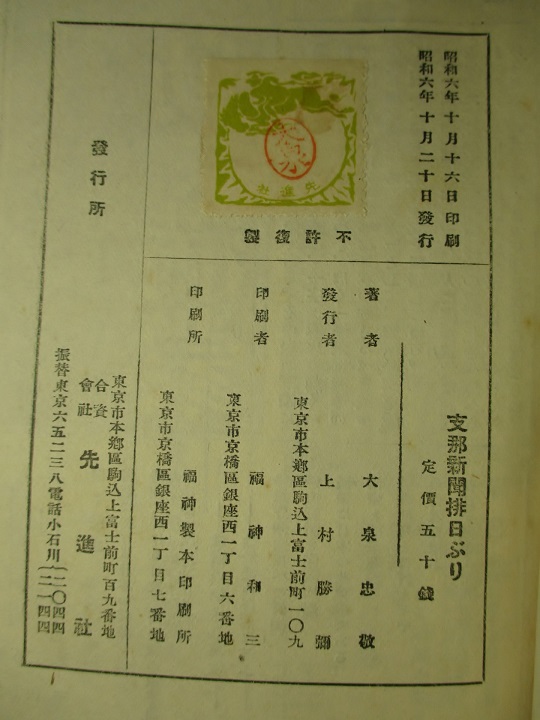 昭和六年十月十六日印刷
昭和六年十月二十日發行
先進社
不許復製
支那新聞排日ぶり
定價五十錢
著者 大泉忠敬
發行者 上村勝彌
東京市本鄕區駒込上富士前町一〇九
印刷者 福神和三
東京市京橋區銀座西一丁目六番地
印刷所 福神製本印刷所
東京市京橋區銀座西一丁目七番地
發行所
東京市本鄕區駒込上富士前町百九番地
合資會社 先進社
振替東京六五二三八電話小石川(二〇四四 二一四四